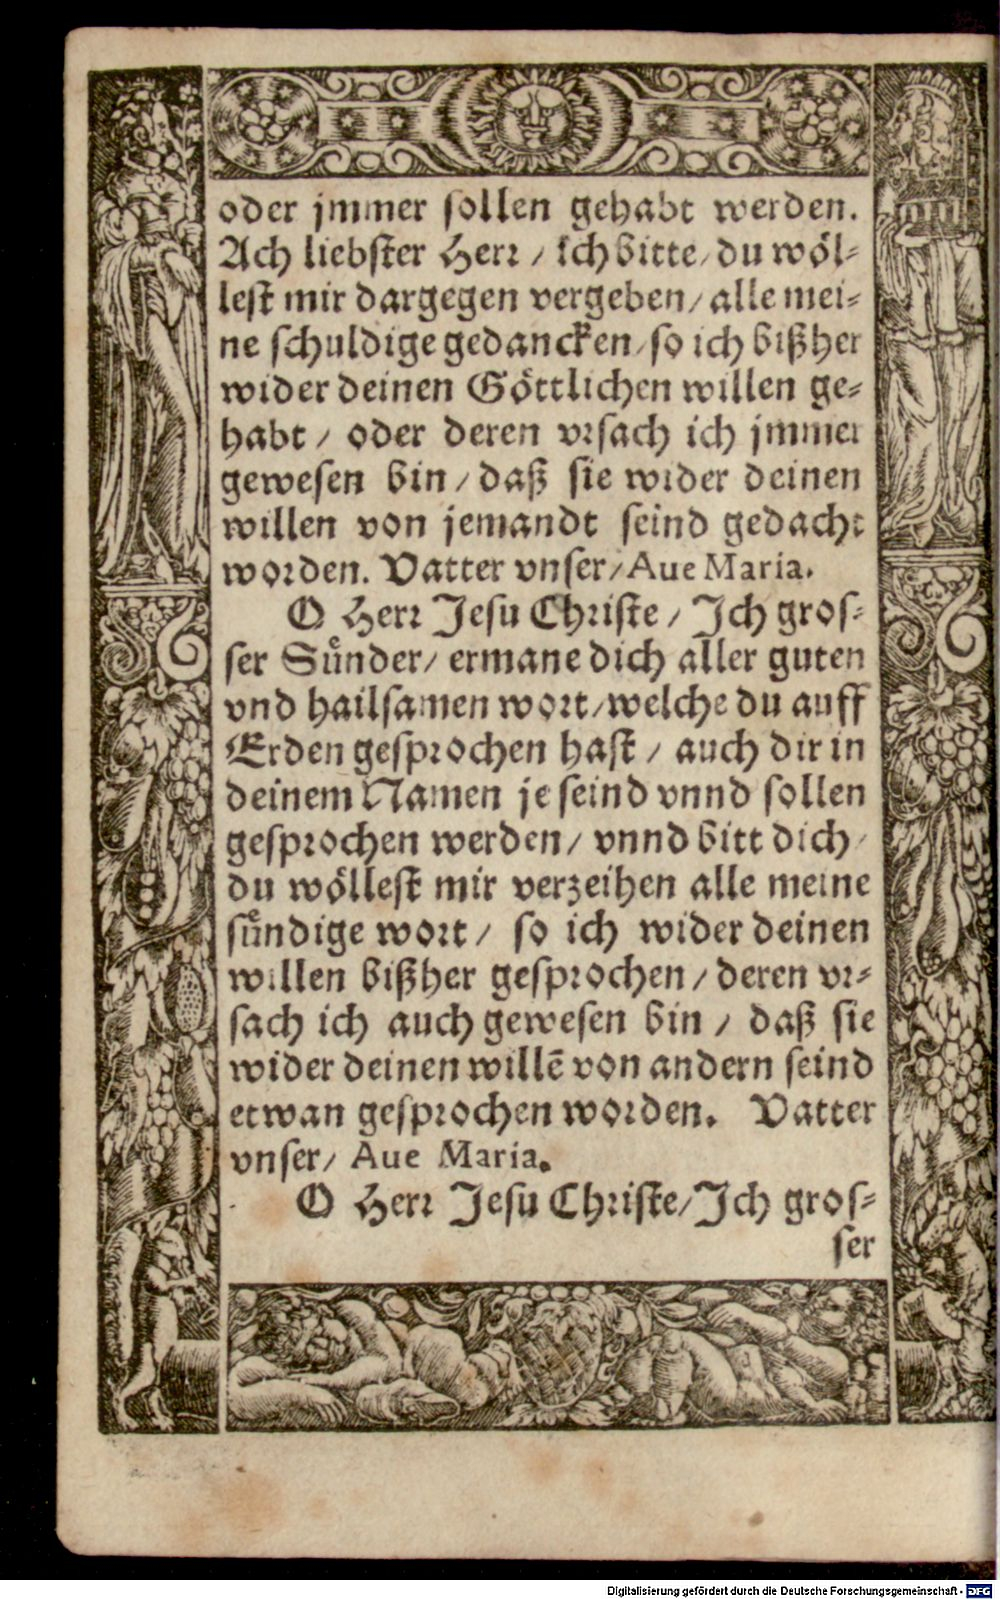 oder jmmer sollen gehabt werden.
Ach liebster Herr / Ich bitte / du wöl-
lest mir dargegen vergeben / alle mei-
ne schuldige gedancken / so ich bißher
wider deinen Göttlichen willen ge-
habt / oder deren vrsach ich jmmer
gewesen bin / daß sie wider deinen
willen von jemandt seind gedacht
worden. Vatter vnser / Aue Maria.
O Herr Jesu Christe / Ich gros-
ser Sünder / ermane dich aller guten
vnd hailsamen wort / welche du auff
Erden gesprochen hast / auch dir in
deinem Namen je seind vnnd sollen
gesprochen werden / vnnd bitt dich /
du wöllest mir verzeihen alle meine
sündige wort / so ich wider deinen
willen bißher gesprochen / deren vr-
sach ich auch gewesen bin / daß sie
wider deinen willẽ von andern seind
etwan gesprochen worden. Vatter
vnser / Aue Maria.
O Herr Jesu Christe / Ich gros-
ser
Digitalisierung gefördert durch die Deutsche Forschungsgemeinschaft - DFG